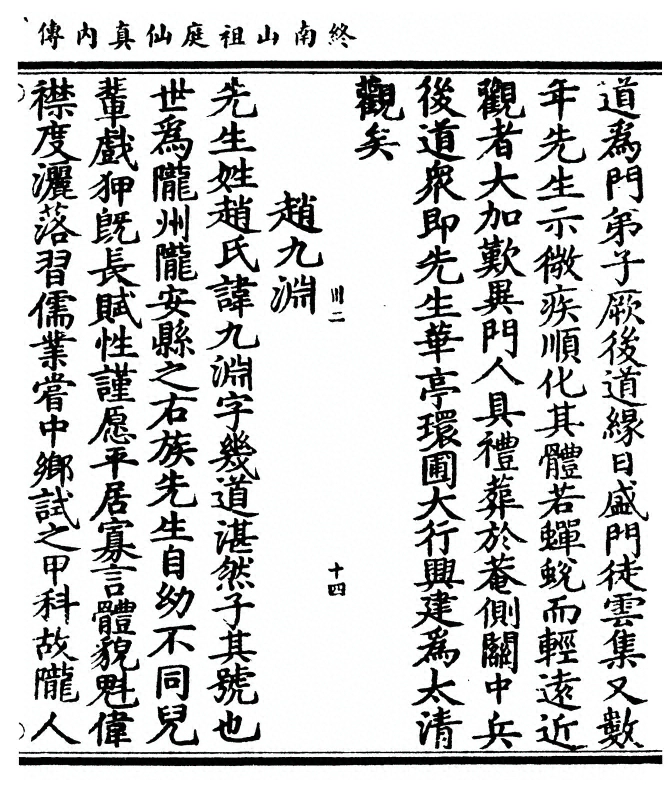 終南山祖庭仙真內傳
道爲門弟子厥後道緣日盛門徒雲集又數
年先生示微疾順化其體若蟬蛻而輕遠近
觀者大加歎異門人具禮葬於菴側關中兵
後道衆即先生華亭環圃大行興建爲太清
觀矣
川二
十四
趙九淵
先生姓趙氏諱九淵字幾道湛然子其號也
世爲隴州隴安縣之右族先生自幼不同兒
輩戲狎旣長賦性謹愿平居寡言體貌魁偉
襟度灑落習儒業嘗中鄉試之甲科故隴人